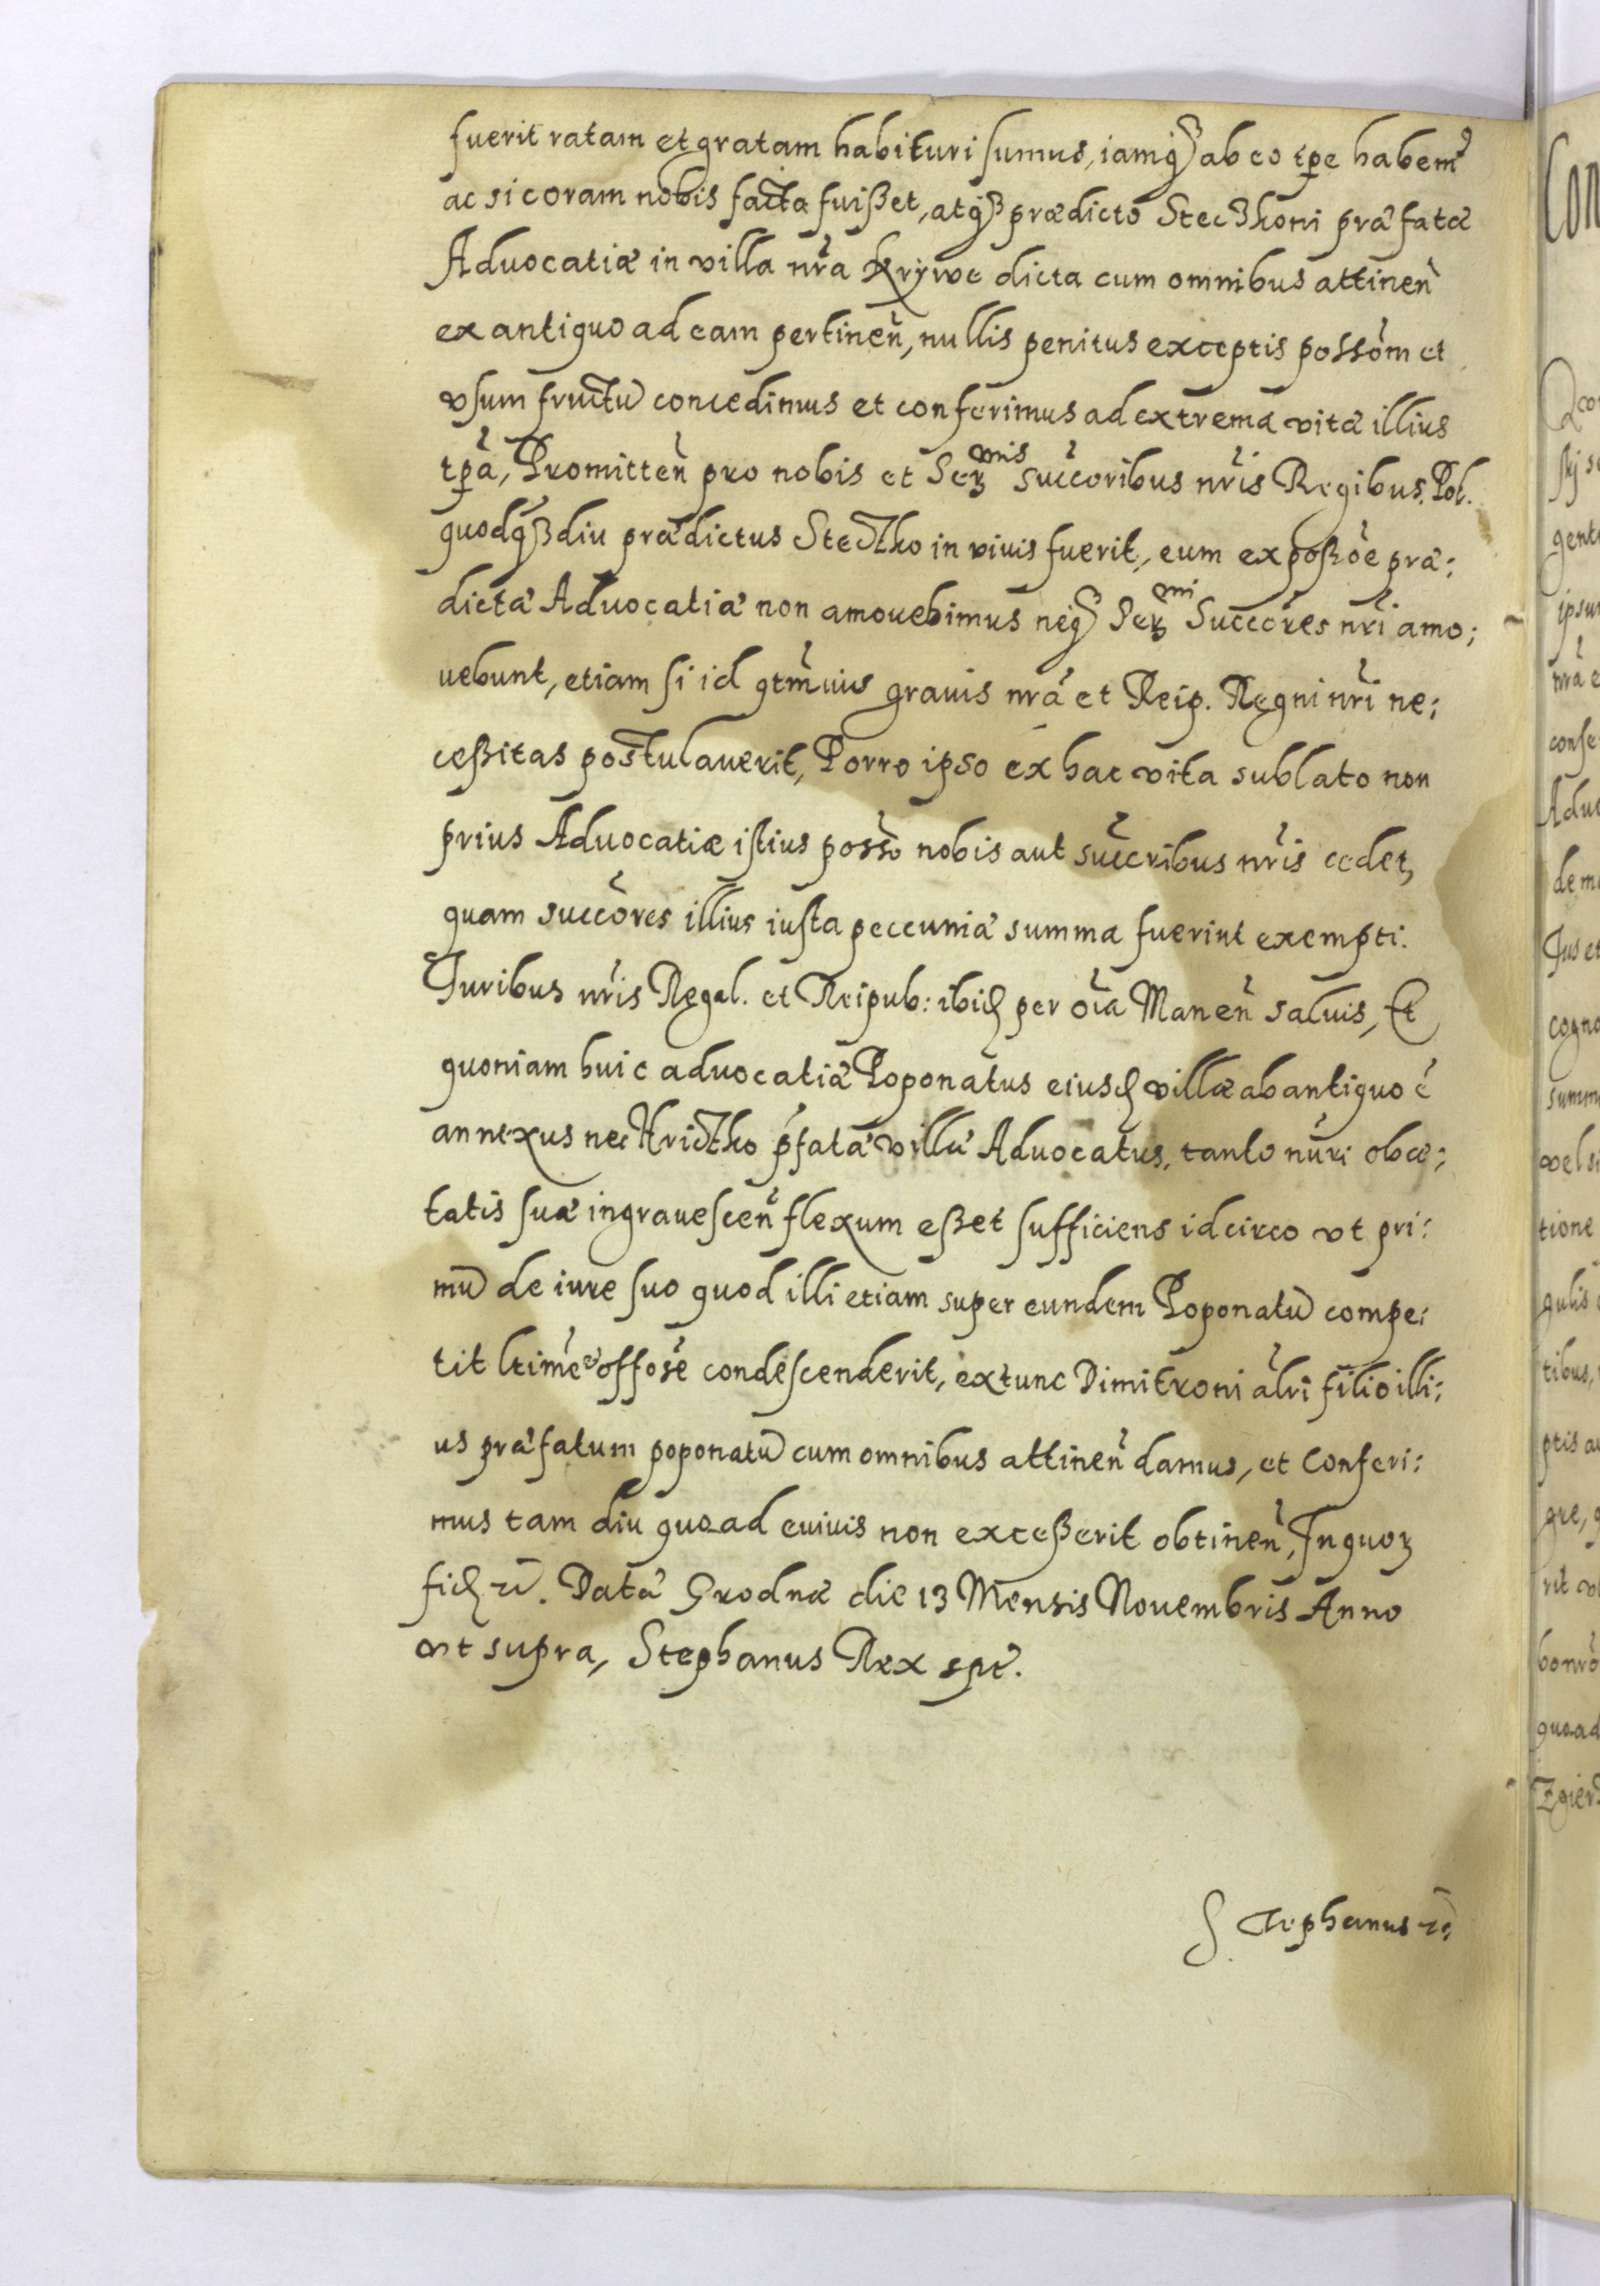 fuerit ratam et gratam habituri sumus, iamq3 ab eo tp̱e habem9
ac si coram nobis facta fuißet, atq3 prædicto Stecʒkoni præfatæ
Aduocatiæ in villa nr̃a Krywe dicta cum omnibus attineñ
ex antiquo ad eam pertineñ, nullis penitus exceptis possõm et
vsum fructũ concedimus et conferimus ad extrema vitæ illius
tp̱ã, Promitteñ pro nobis et Serᵐⁱˢ succ̃oribus nr̃is Regibus Pol.
quodq3 diu prædictus Steczko in viuis fuerit, eum ex poßõe præ:
dictæ Aduocatiæ non amouebimus neq3 Serᵐⁱ Succõres nr̃i amo:
uebunt, etiam si id qtm̃uius grauis nr̃a et Reip. Regni nr̃i ne:
ceßitas postulauerit, Porro ipso ex hac vita sublato non
prius Aduocatiæ istius possõ nobis aut succ̃ribus nr̃is cedet,
quam succõres illius iusta peccuniæ summa fuerint exempti.
Juribus nr̃is Regal. et Reipub: ibiđ per oĩa Maneñ saluis, Et
quoniam huic aduocatiæ Poponatus eiusđ villæ ab antiquo ẽ
annexus nec Hriczko p̃fatæ villæ Aduocatus, tanto nũri ob æ:
tatis suæ ingrauesceñ flexum eßet sufficiens idcirco vt pri:
mũ de iure suo quod illi etiam super eundem Poponatũ compe:
tit ltim̃e offõse condescenderit, extunc Dimitroni alr̃i filio illi:
us præfatum poponatũ cum omnibus attineñ damus, et Conferi:
mus tam diu quoad euiuis non exceßerit obtineñ, In quorʒ
fiđ ꝛc̃. Datæ Grodnæ die 13 Mensis Nouembris Anno
vt supra, Stephanus Rex spt̃.
Stephanus ꝛc̃